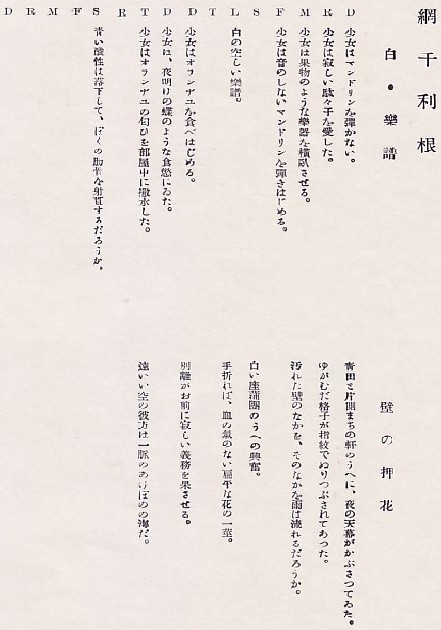 網千利根
白・樂譜
D 少女はマンドリンを彈かない。
R 少女は寂しい駄々子を愛した。
M 少女は果物のような樂器を横臥させる。
F 少女は音のしないマンドリンを彈きはじめる。
S
L 白の空しい樂譜。
T
D 少女はオランヂユを食べはじめる。
D 少女は、夜明けの蝶のような食慾にゐた。
T 少女はオランヂユの匂ひを部屋中に撒水した。
R
S 青い酸性は落下して、ぼくの肋骨を射貫するだらうか。
F
M
R
D
壁の押花
青田と片側まちの軒のうへに、夜の天幕がかぶさつてゐた。
ゆがむだ格子が指紋でぬりつぶされてあつた。
汚れた壁のなかを、そのなかを雨は流れるだらうか。
白い座蒲團のうへの興奮。
手折れば、血の氣のない扁平な花の一莖。
別離がお前に寂しい義務を果させる。
遠いい空の彼方は一脈のあけぼのの海だ。